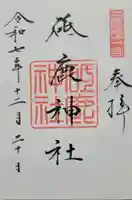 奉拝
砥鹿神社
令和七年十二月二十日